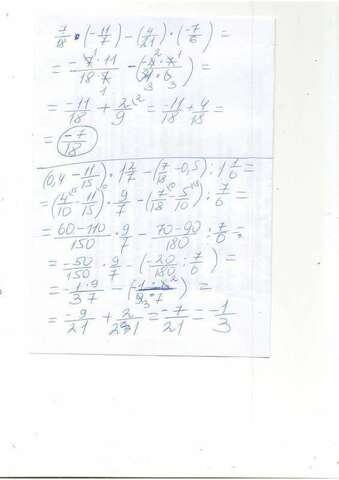 7/18 • (-11/7) - (4/21) • (-7/6) =
= - 7·11/18·7 - (-4·7/21·6) =
= -11/18 + 2/9 = -11+4/18 =
= -7/18
(0,4 - 11/15) • 1 2/7 - (7/18 - 0,5) : 1 1/6 =
= (4/10 - 11/15) • 9/7 - (7/18 - 5/10) : 7/6 =
= 60-110/150 • 9/7 - 70-90/180 : 7/6 =
= -50/150 • 9/7 - (-20/180 : 7/6) =
= -1·9/3·7 - (-1·6/9·7) =
= -9/21 + 2/21 = -7/21 = -1/3